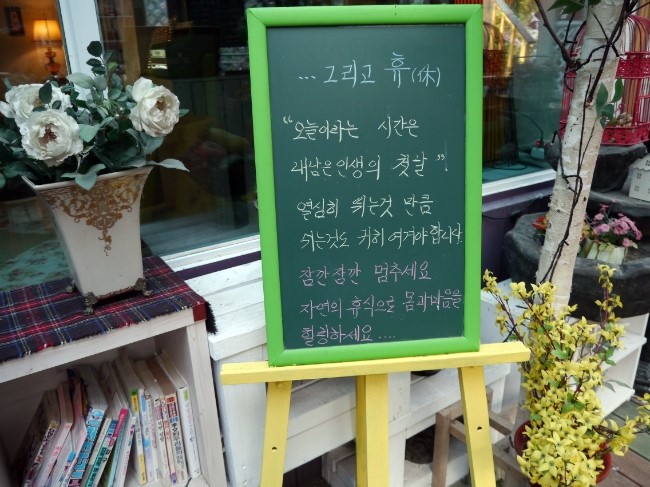 ... 그리고 휴(休)
"오늘이라는 시간은
내남은인생의 첫날"!
열심히 뛰는것 만큼
쉬는것도 귀히 여겨야합니다.
잠깐잠깐 멈추세요
자연의 휴식으로 몸과마음을
힐링하세요....